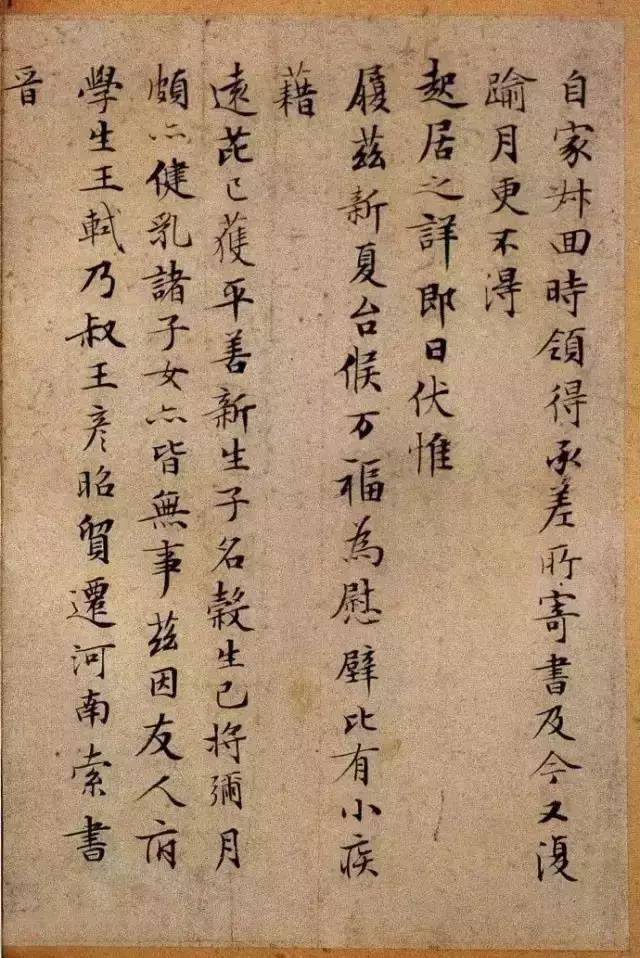 自家回時領得承差所寄書及今又復
踰月更不得
起居之詳即日伏惟
履茲新夏台候万福為慰壁比有小疾
藉
遠芘已獲平善新生子名穀生已將彌月
頗亦健乳諸子女亦皆無事茲因友人府
學生王軾乃叔王彥昭貿遷河南索書
晉